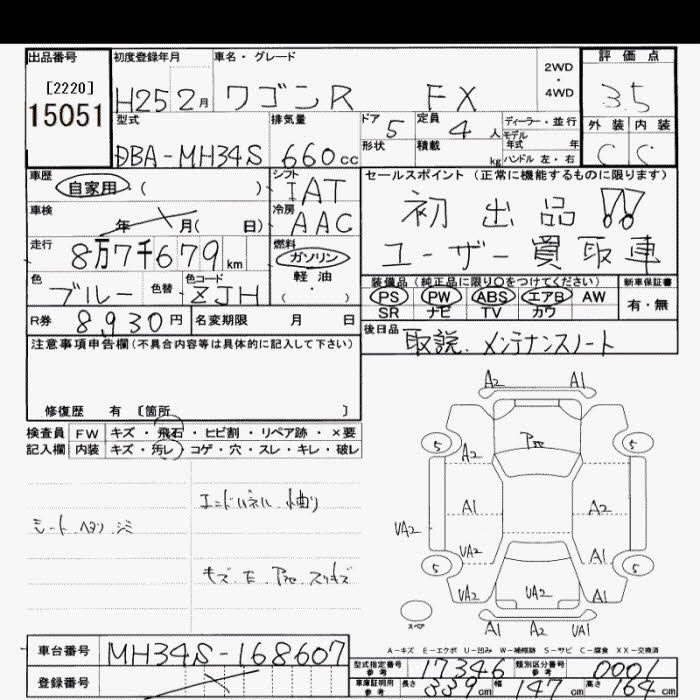 出品番号 初度登録年月 車名・グレード 2WD・4WD 評価点
[2220]
15051
H25 2月 ワゴンR FX 3.5
型式 排気量 ドア 5 定員 4人 ディーラー・並行 外装 内装
モデル年式 年
DBA-MH34S 660cc 形状 積載 kg ハンドル 左・右 C C
車歴 自家用・( ) シフト IAT セールスポイント(正常に機能するものに限ります)
車検 年 月( 日) 冷房 AAC 初出品!!
走行 8万7千679km 燃料 ガソリン・軽油・( ) ユーザー買取車
色 ブルー 色替 色コード ZJH
装備品(純正品に限り○をつけてください) 新車保証書
PS PW ABS エアB AW 有・無
SR ナビ TV カワ
R券 8,930円 名変期限 月 日 後日品 取説.メンテナンスノート
注意事項申告欄(不具合内容等は具体的に記入して下さい)
修復歴 有 〔箇所 〕
検査員記入欄 FW キズ・飛石・ヒビ割・リペア跡・×要
内装 キズ・汚レ・コゲ・穴・スレ・キレ・破レ
シート.ヘタリ.シミ
エンドパネル.小曲り
A2 A1
5 5
A2
A1 A2
UA2 UA2 A1
5 5
UA2 UA2 A1
A1 A2 UA1
スペア
A-キズ E-エクボ U-凹み W-補修跡 S-サビ C-腐食 XX-交換済
車台番号 MH34S-168607
登録番号
型式指定番号 参考 17346 類別区分番号 参考 0001
車庫証明用 参考 長さ 339cm 幅 147cm 高さ 164cm